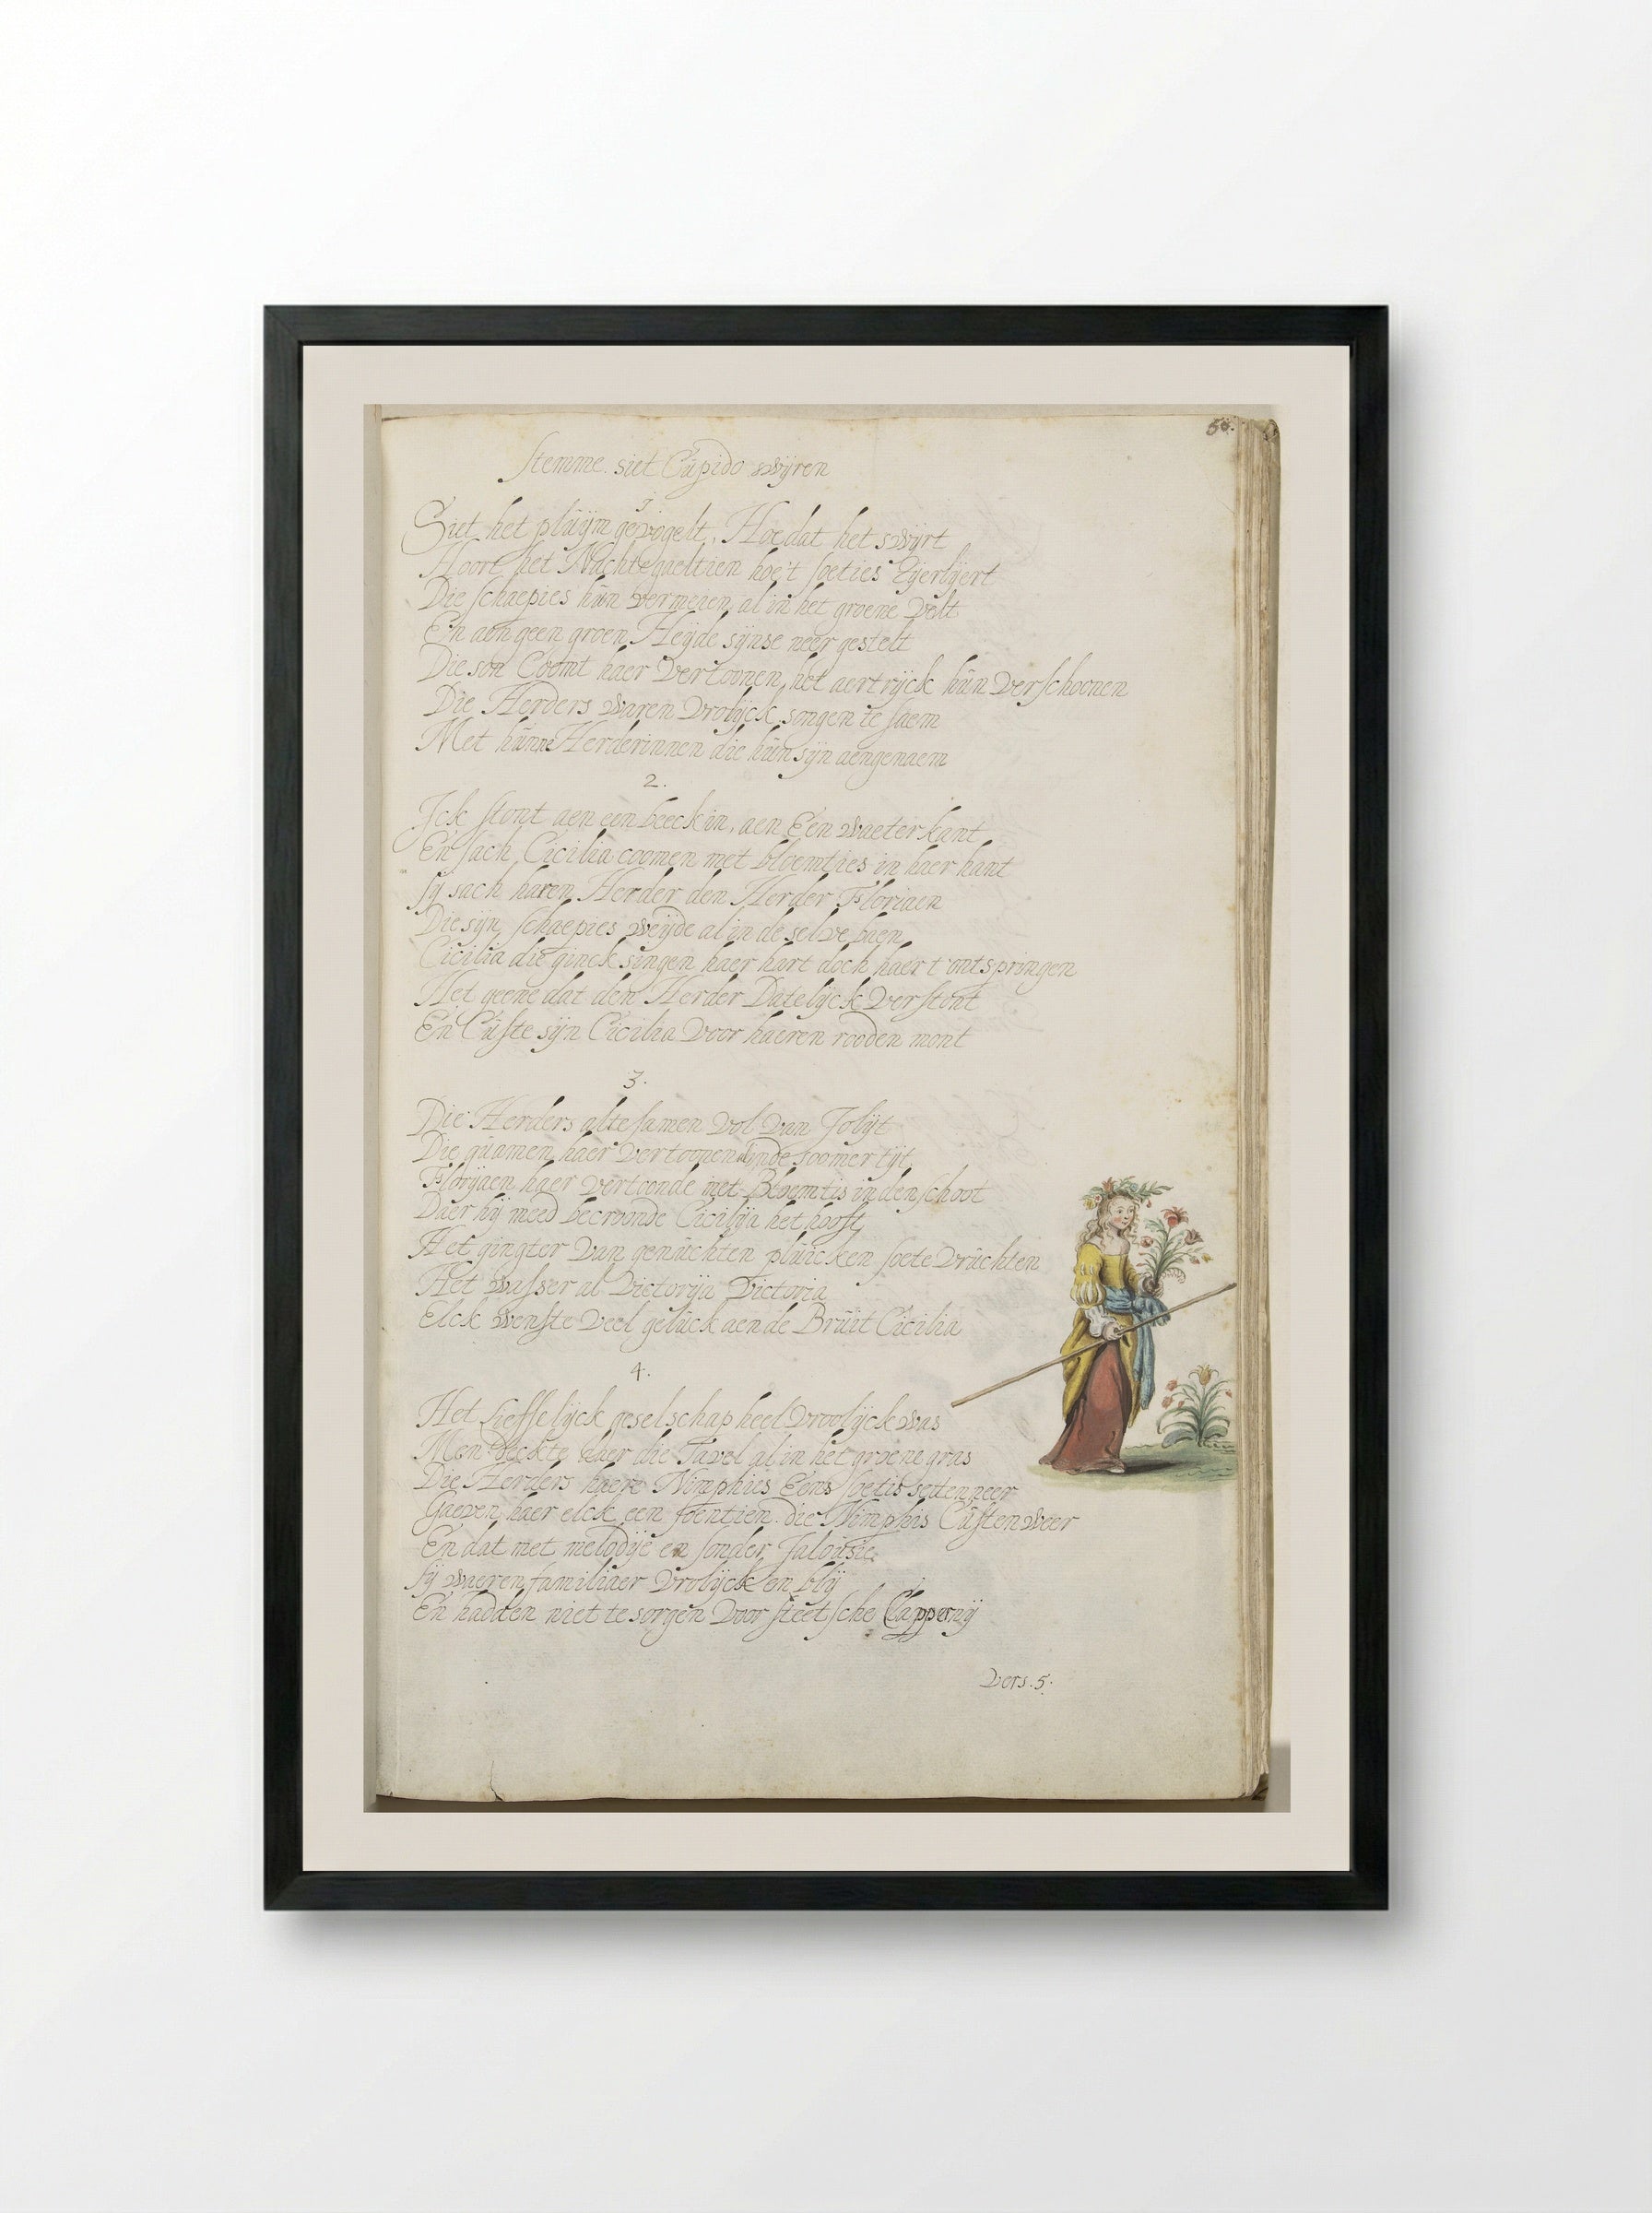 50.
Stemme. siet Cupido swijren
1
Siet het pluijm gevogelt, Hoe dat het swijrt
Hoort het Nachtegaeltien hoe't soeties Tijerlijert
Die schaepies hun vermeien, al in het groene velt
En aen geen groen Heijde sijnse neer gestelt
Die son Coomt haer vertoonen, het aertrijck hun verschoonen
Die Herders waren vrolijck songen te saem
Met hunne Herderinnen die hun sijn aengenaem
2.
Ick stont aen een beeckin, aen Een waeterkant
En sach Cicilia coomen met bloemties in haer hant
sij sach haren Herder den Herder Floriaen
Die sijn schaepies weijde al in de selve baen
Cicilia die ginck singen haer hart doch haer t'ontspringen
Het geene dat den Herder Datelijck verstont
En Custe sijn Cicilia voor haeren rooden mont
3.
Die Herders altesamen vol van Jolijt
Die quamen haer vertoonen inde soomer tijt
Florijaen haer vertoonde met Bloemtis in den schoot
Daer hij meed becroonde Cicilija het hooft
Het gingter van genuchten pluicken soete vruchten
Het wasser al Victorija Victoria
Elck wenste veel geluck aen de Bruit Cicilia
4.
Het Lieffelijck geselschap heel vroolijck was
Men deckte haer die Tavel al in het groene gras
Die Herders haere Nimphies Eens soetis setten neer
Gaeven haer elck een soentien. die Nimphis Custen weer
En dat met melodije en sonder Jalousie
sij waeren familiaer vrolijck en blij
En hadden niet te sorgen voor steetsche Clappernij
Vers. 5.